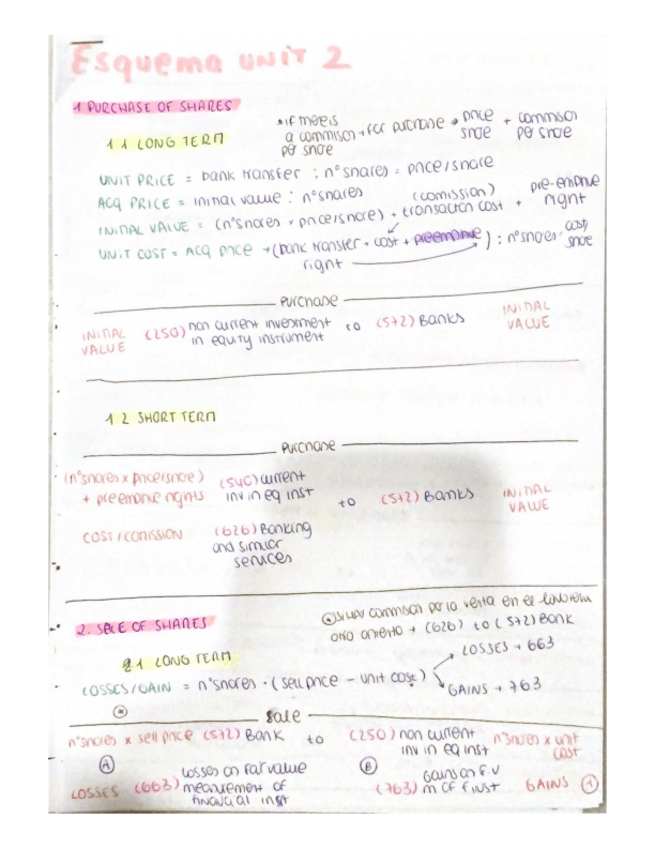 Esquema UNIT 2
1 PURCHASE OF SHARES
1.1 LONG TERM
*if there is a commission for purchase → price share + commission per share
per share
UNIT PRICE = bank transfer : nº shares = price/share
ACQ PRICE = initial value : nº shares
INITIAL VALUE = (nº shares x price/share) + transaction cost + pre-emptive right
(comission)
UNIT COST = ACQ price → (bank transfer + cost + preemptive right) : nº shares = cost/share
Purchase
INITIAL VALUE (250) non current investment in equity instrument to (572) Banks INITIAL VALUE
1.2 SHORT TERM
Purchase
(nº shares x price/share) + preemptive rights (540) current inv in eq inst to (572) Banks INITIAL VALUE
COST/COMISSION (626) Banking and similar services
2. SALE OF SHARES
2.1 LONG TERM
si hay commission por la venta en el
otro asiento → (626) to (572) Bank
LOSSES/GAIN = nº shares · (sell price - unit cost)
LOSSES → 663
GAINS → 763
Sale
nº shares x sell price (572) Bank to (250) non current inv in eq inst nº shares x unit cost
A
B
LOSSES (663) Losses on fair value measurement of financial inst
(763) Gains on f.v m of f inst GAINS 1